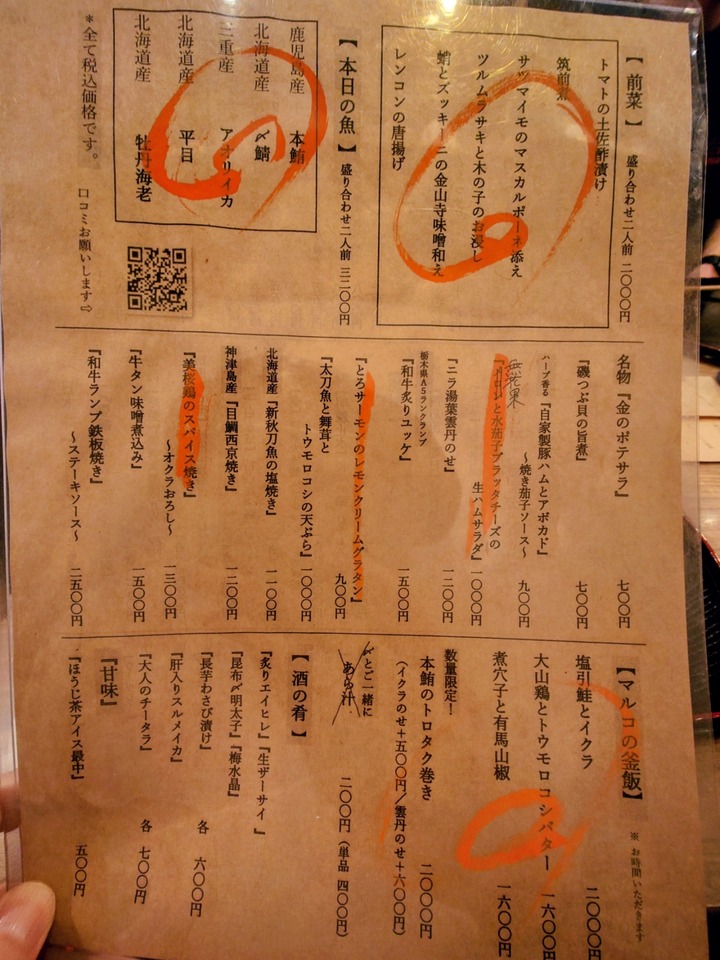 【前菜】 盛り合わせ二人前 二〇〇〇円
トマトの土佐酢漬け
筑前煮
サツマイモのマスカルポーネ添え
ツルムラサキと木の子のお浸し
蛸とズッキーニの金山寺味噌和え
レンコンの唐揚げ
【本日の魚】 盛り合わせ二人前 三二〇〇円
鹿児島産 本鮪
北海道産 〆鯖
三重産 アオリイカ
北海道産 平目
北海道産 牡丹海老
＊全て税込価格です。
口コミお願いします⇨
名物『金のポテサラ』 七〇〇円
『磯つぶ貝の旨煮』 七〇〇円
ハーブ香る『自家製豚ハムとアボカド』
～焼き茄子ソース～ 九〇〇円
無花果
『メロンと水茄子ブラッタチーズの
生ハムサラダ』 一〇〇〇円
『ニラ湯葉雲丹のせ』 一二〇〇円
栃木県A5ランクランプ
『和牛炙りユッケ』 一五〇〇円
『とろサーモンのレモンクリームグラタン』 九〇〇円
『太刀魚と舞茸と
トウモロコシの天ぷら』 一〇〇〇円
北海道産『新秋刀魚の塩焼き』 一一〇〇円
神津島産『目鯛西京焼き』 一二〇〇円
『美桜鶏のスパイス焼き』
～オクラおろし～ 一三〇〇円
『牛タン味噌煮込み』 一五〇〇円
『和牛ランプ鉄板焼き』
～ステーキソース～ 二五〇〇円
【マルコの釜飯】 ※お時間いただきます
塩引鮭とイクラ 二〇〇〇円
大山鶏とトウモロコシバター 一六〇〇円
煮穴子と有馬山椒 一六〇〇円
数量限定！
本鮪のトロタク巻き 二〇〇〇円
（イクラのせ＋五〇〇円／雲丹のせ＋六〇〇円）
〆とご一緒に
あら汁 二〇〇円（単品 四〇〇円）
【酒の肴】
『炙りエイヒレ』『生ザーサイ』
『昆布〆明太子』『梅水晶』
『長芋わさび漬け』 各 六〇〇円
『肝入りスルメイカ』
『大人のチータラ』 各 七〇〇円
『甘味』
『ほうじ茶アイス最中』 五〇〇円